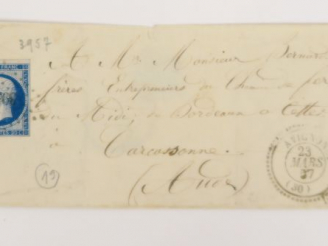 3957
A M. Monsieur Bernard
frères Entrepreneurs du Chemin de fer
du Midi, de Bordeaux à Cette
à
Carcassonne.
(Aude)
23
MARS
57
(30)
19